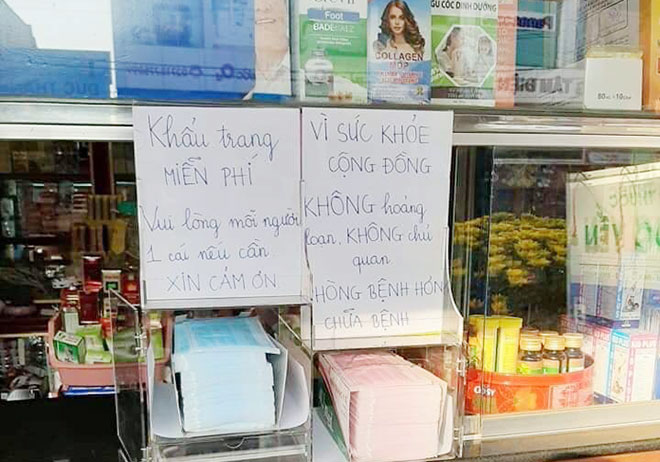 GU CỐC DINH DƯỠNG
Foot
COLLAGEN
Khẩu trang
MIỄN PHÍ
Vui lòng mỗi người
1 cái nếu cần
XIN CẢM ƠN
VÌ SỨC KHỎE
CỘNG ĐỒNG
KHÔNG hoảng
loạn, KHÔNG chủ
quan
HÒNG BỆNH HƠN
CHỮA BỆNH